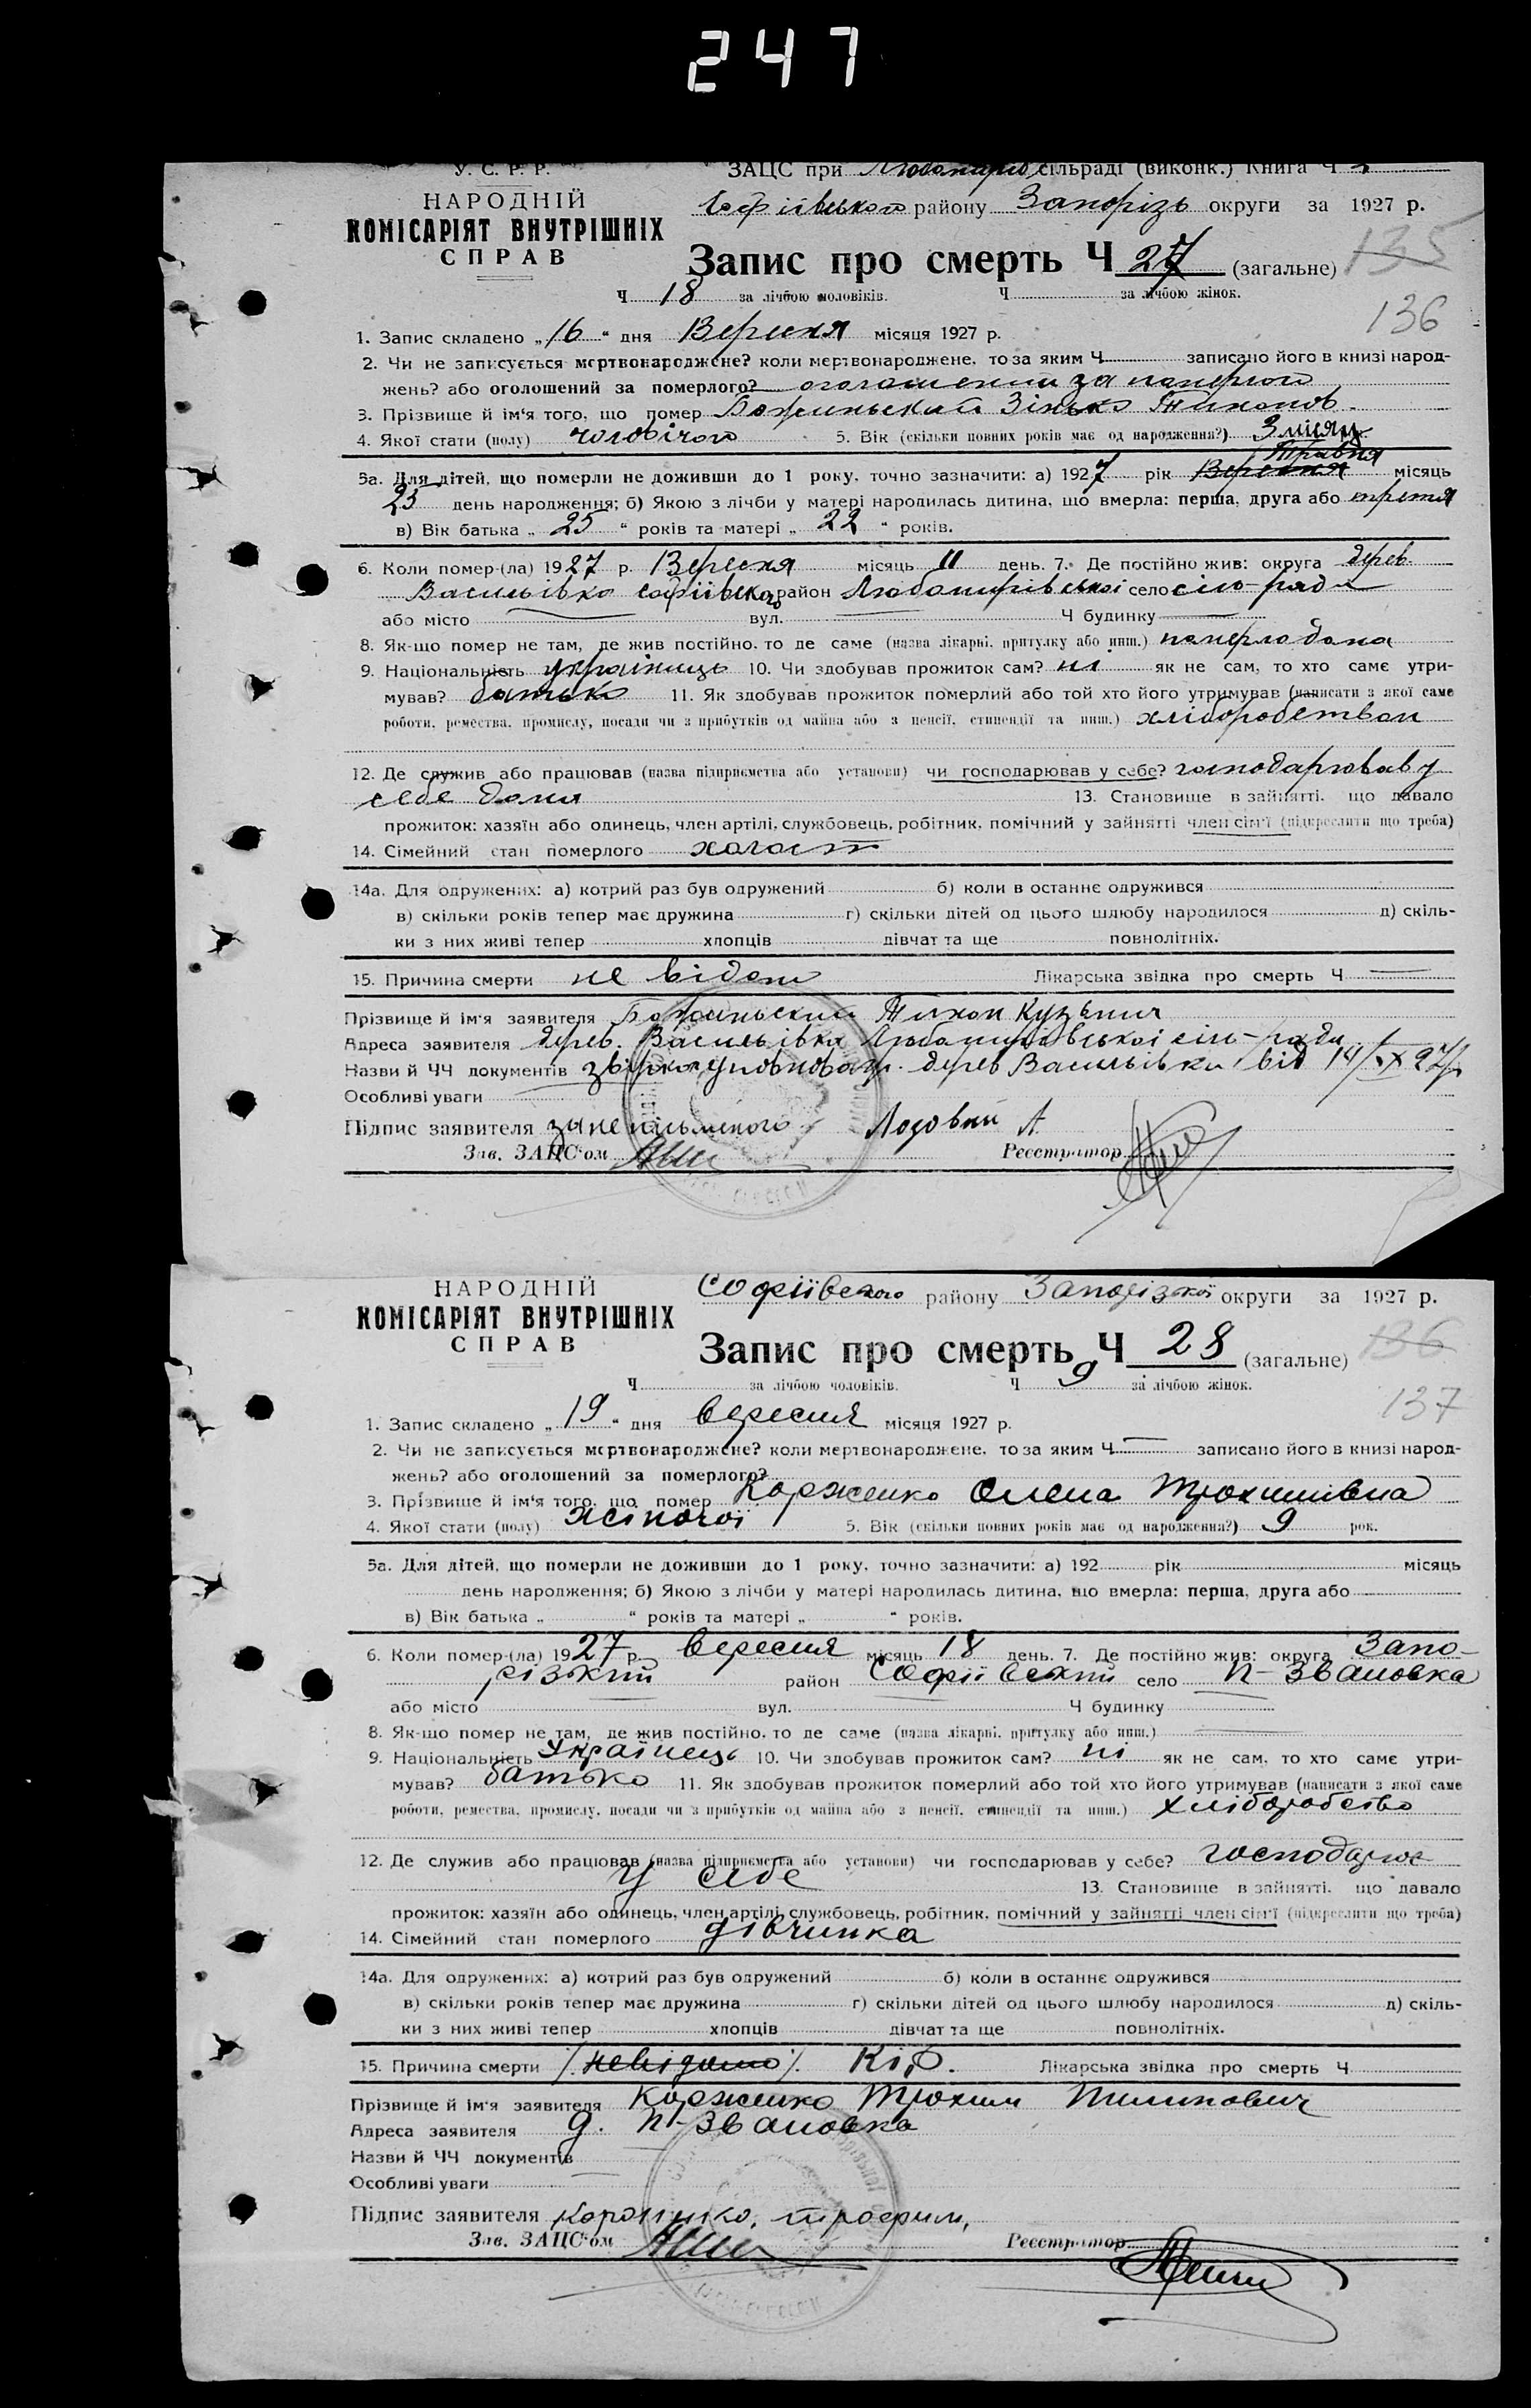 247
У. С. Р. Р.
ЗАЦС при сільраді (виконк.) Книга Ч
НАРОДНІЙ
району Запорізь округи за 1927 р.
КОМІСАРІЯТ ВНУТРІШНІХ
СПРАВ
Запис про смерть Ч 27 (загальне) 135
Ч 18 за лічбою чоловіків. Ч за лічбою жінок.
136
1. Запис складено „16“ дня Вересня місяця 1927 р.
2. Чи не записується мертвонароджене? коли мертвонароджене, то за яким Ч записано його в книзі народ-
жень? або оголошений за померлого? за
3. Прізвище й ім'я того, що помер Зінько
4. Якої стати (полу) чоловічого 5. Вік (скільки повних років має од народження?) 3 місяц.
Травня
5а. Для дітей, що померли не доживши до 1 року, точно зазначити: а) 1927 рік Вересня місяць
25 день народження; б) Якою з лічби у матері народилась дитина, що вмерла: перша, друга або третя
в) Вік батька „25“ років та матері „22“ років.
6. Коли помер-(ла) 1927 р. Вересня місяць 11 день. 7. Де постійно жив: округа дерев.
Васильівка район село сіль-рада
або місто вул. Ч будинку
8. Як-що помер не там, де жив постійно, то де саме (назва лікарні, притулку або инш.) померло дома
9. Національність україниць 10. Чи здобував прожиток сам? ні як не сам, то хто саме утри-
мував? батько 11. Як здобував прожиток померлий або той хто його утримував (написати з якої саме
роботи, ремества, промислу, посади чи з прибутків од майна або з пенсії, стипендії та инш.) хліборобством
12. Де служив або працював (назва підприємства або установи) чи господарював у себе? господарював у
себе дома 13. Становище в зайнятті, що давало
прожиток: хазяїн або одинець, член артілі, службовець, робітник, помічний у зайнятті член сім'ї (підкреслити що треба)
14. Сімейний стан померлого холост
14а. Для одружених: а) котрий раз був одружений б) коли в останнє одружився
в) скільки років тепер має дружина г) скільки дітей од цього шлюбу народилося д) скіль-
ки з них живі тепер хлопців дівчат та ще повнолітніх.
15. Причина смерти не відомо Лікарська звідка про смерть Ч
Прізвище й ім'я заявителя Тихон Кузьмич
Адреса заявителя дерев. Васильівка сіль-ради
Назви й ЧЧ документів дерев Васильівки від 14/IX 27 р.
Особливі уваги
Підпис заявителя за неписьменого Лозовий А.
Зав. ЗАЦС'ом Реєстратор
НАРОДНІЙ
Софіївського району Запорізької округи за 1927 р.
КОМІСАРІЯТ ВНУТРІШНІХ
СПРАВ
Запис про смерть Ч 28 (загальне) 136
Ч за лічбою чоловіків. Ч 9 за лічбою жінок.
137
1. Запис складено „19“ дня вересня місяця 1927 р.
2. Чи не записується мертвонароджене? коли мертвонароджене, то за яким Ч — записано його в книзі народ-
жень? або оголошений за померлого?
3. Прізвище й ім'я того, що помер Корженко Олена Трохимівна
4. Якої стати (полу) жіночої 5. Вік (скільки повних років має од народження?) 9 рок.
5а. Для дітей, що померли не доживши до 1 року, точно зазначити: а) 192 рік місяць
день народження; б) Якою з лічби у матері народилась дитина, що вмерла: перша, друга або
в) Вік батька „ “ років та матері „ “ років.
6. Коли помер-(ла) 1927 р. вересня місяць 18 день. 7. Де постійно жив: округа Запо-
різкий район Софіівський село п-Звановка
або місто вул. Ч будинку
8. Як-що помер не там, де жив постійно, то де саме (назва лікарні, притулку або инш.)
9. Національність Українець 10. Чи здобував прожиток сам? ні як не сам, то хто саме утри-
мував? батько 11. Як здобував прожиток померлий або той хто його утримував (написати з якої саме
роботи, ремества, промислу, посади чи з прибутків од майна або з пенсії, стипендії та инш.) хліборобство
12. Де служив або працював (назва підприємства або установи) чи господарював у себе? господарює
у себе 13. Становище в зайнятті, що давало
прожиток: хазяїн або одинець, член артілі, службовець, робітник, помічний у зайнятті член сім'ї (підкреслити що треба)
14. Сімейний стан померлого дівчинка
14а. Для одружених: а) котрий раз був одружений б) коли в останнє одружився
в) скільки років тепер має дружина г) скільки дітей од цього шлюбу народилося д) скіль-
ки з них живі тепер хлопців дівчат та ще повнолітніх.
15. Причина смерти (невідомо). Кір. Лікарська звідка про смерть Ч
Прізвище й ім'я заявителя Корженко Трохим Пилипович
Адреса заявителя д. п-Звановка
Назви й ЧЧ документів
Особливі уваги
Підпис заявителя
Зав. ЗАЦС'ом Реєстратор